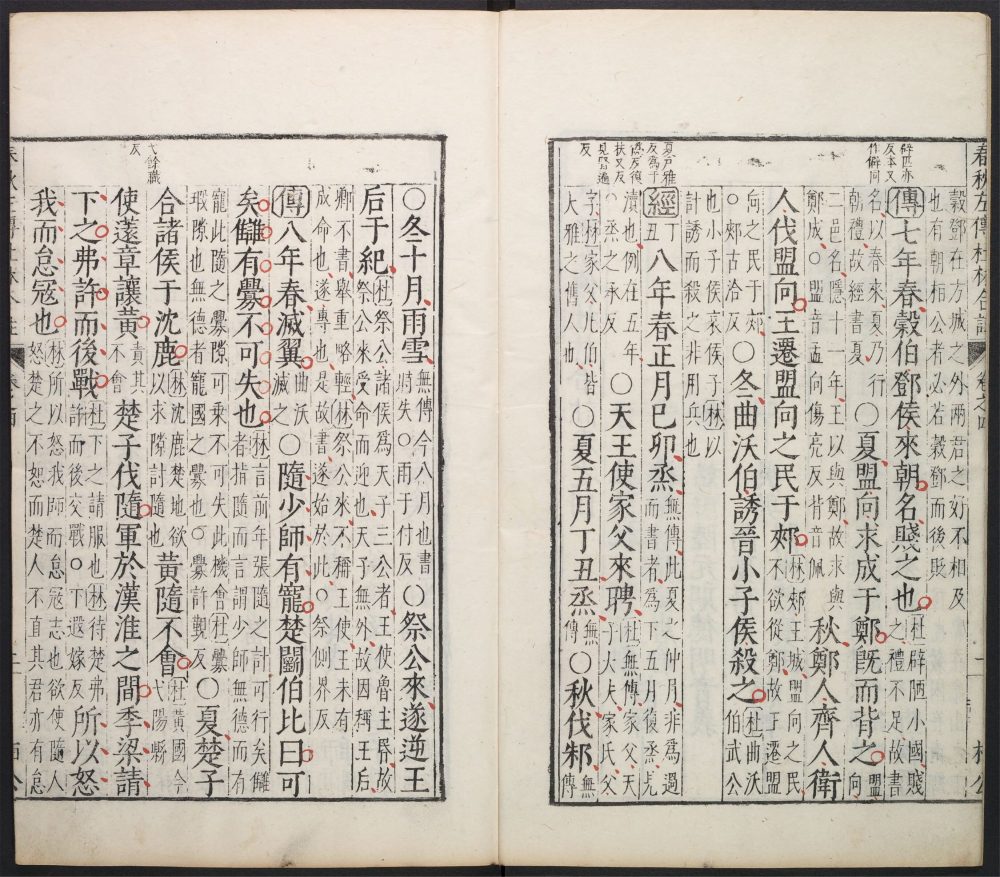 春秋左傳杜林合註 卷之四 桓公
辟匹亦反本又作僻同
穀鄧在方城之外兩君之好不相及也有朝相公者必若穀鄧而後貶
傳七年春穀伯鄧侯來朝名賤之也杜辟陋小國賤之禮不足故書
名以春來夏乃行朝禮故經書夏○夏盟向求成于鄭旣而背之盟向
二邑名隱十一年王以與鄭故求與鄭成○盟音孟向傷亮反背音佩秋鄭人齊人衛
人伐盟向王遷盟向之民于郟林郟王城盟向之民不欲從鄭故王遷盟
向之民于郟○郟古洽反○冬曲沃伯誘晉小子侯殺之杜曲沃伯武公
也小子侯哀侯子林以計誘而殺之非用兵也
夏戶雅反為于偽反復扶又反見賢遍反
經丁丑八年春正月己卯烝無傳此夏之仲月非為過而書者為下五月復烝見
瀆也例在五年○烝之承反○天王使家父來聘杜無傳家父天子大夫家氏父
字林家父凡伯皆大雅之舊人也○夏五月丁丑烝無傳○秋伐邾無傳
○冬十月雨雪無傳今八月也書時失○雨于付反○祭公來遂逆王
后于紀杜祭公諸侯為天子三公者王使魯主昏故祭公來受命而迎也天子無外故因稱王后
卿不書舉重略輕林祭公來不稱王使王未有成命也遂專也是故書遂始於此○祭側界反
傳八年春滅翼曲沃滅之○隨少師有寵楚鬬伯比曰可
矣讎有釁不可失也林言前年張隨之計可行矣讎者指隨而言謂少師無德而有
寵此隨之釁隙可乘不可失此機會杜釁瑕隙也無德者寵國之釁也○釁許覲反○夏楚子
弋餘職反
合諸侯于沈鹿林沈鹿楚地欲以求隙討隨也黃隨不會杜黃國今弋陽縣
使薳章讓黃責其不會楚子伐隨軍於漢淮之間季梁請
下之弗許而後戰杜下之請服也林待楚弗許而後交戰○下遐嫁反所以怒
我而怠寇也林所以怒我師而怠寇志也欲使隨人怒楚之不恕而楚人不直其君亦有怠